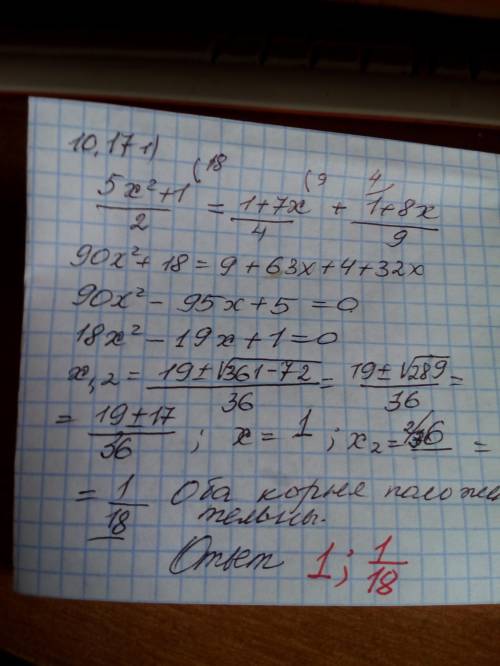 10.17 1)
(18 (9 4/
5x²+1/2 = 1+7x/4 + 1+8x/9
90x²+18=9+63x+4+32x
90x²-95x+5=0
18x²-19x+1=0
x₁,₂ = 19±√361-72/36 = 19±√289/36 =
= 19±17/36 ; x=1 ; x₂= 2/36 =
= 1/18 Оба корня положи
тельны.
Ответ 1; 1/18